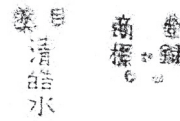 目薬
清皓水
登録
商標